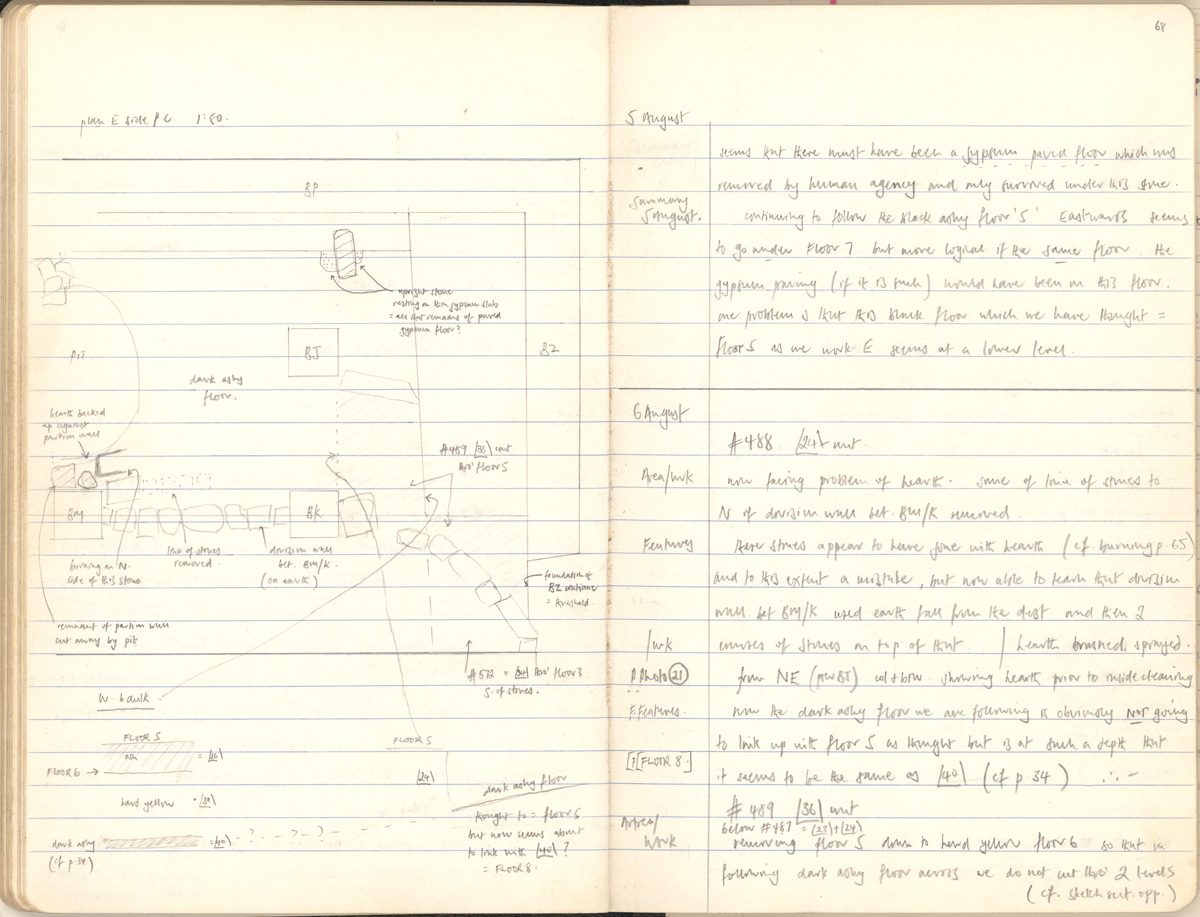 plan E side P.C. 1:50.
BP
upright stone
resting on thin gypsum slab
= all that remains of paved
gypsum floor?
BJ
BZ
PIT
dark ashy
floor.
hearth backed
up against
partion wall
#489 [36] cont
thro' FLOOR 5
BM
BK
burning on N.
side of this stone
line of stones
removed.
division wall
bet. BM/K.
(on earth)
foundation of
BZ continue
= threshold.
remnant of partion wall
cut away by pit
thro' FLOOR 3
S. of stones.
W. baulk
FLOOR 5
ash = [36]
FLOOR 6 →
hard yellow
dark ashy = [40] - ? - - ? - ? - -
(cf p. 34)
FLOOR 5
[24]
dark ashy floor
thought to = floor 5
but now seems about
to link with [40] ?
= FLOOR 8.
68
5 August
seems that there must have been a gypsum paved floor which was
removed by human agency and only survived under this stone.
Summary
5 August.
continuing to follow the black ashy floor '5' Eastwards seems
to go under FLOOR 7 but more logical if the same floor. the
gypsum paving (if it is such) would have been on this floor.
one problem is that this black floor which we have thought =
floor 5 as we work E seems at a lower level.
6 August
#488 [24] cont
Area/wk
now facing problem of hearth. some of line of stones to
N of division wall bet. BM/K removed.
Features
these stones appear to have gone with hearth (cf. burning p. 65)
and to this extent a mistake, but now able to learn that division
wall bet BM/K used earth fall from the dest and then 2
/wk
courses of stones on top of that. / hearth brushed, sprayed.
P Photo (21)
from NE (pier BJ) col + b/w. showing hearth prior to inside cleaning
F. Features.
now the dark ashy floor we are following is obviously not going
to link up with floor 5 as thought but is at such a depth that
[? [FLOOR 8.]
it seems to be the same as [40] (cf p 34) ∴ -
#489 [36] cont
below #487 = [23]+[24]
Area/
Work
removing floor 5 down to hard yellow floor 6 so that in
following dark ashy floor across we do not cut thro' 2 levels
(cf. sketch sect. opp.)